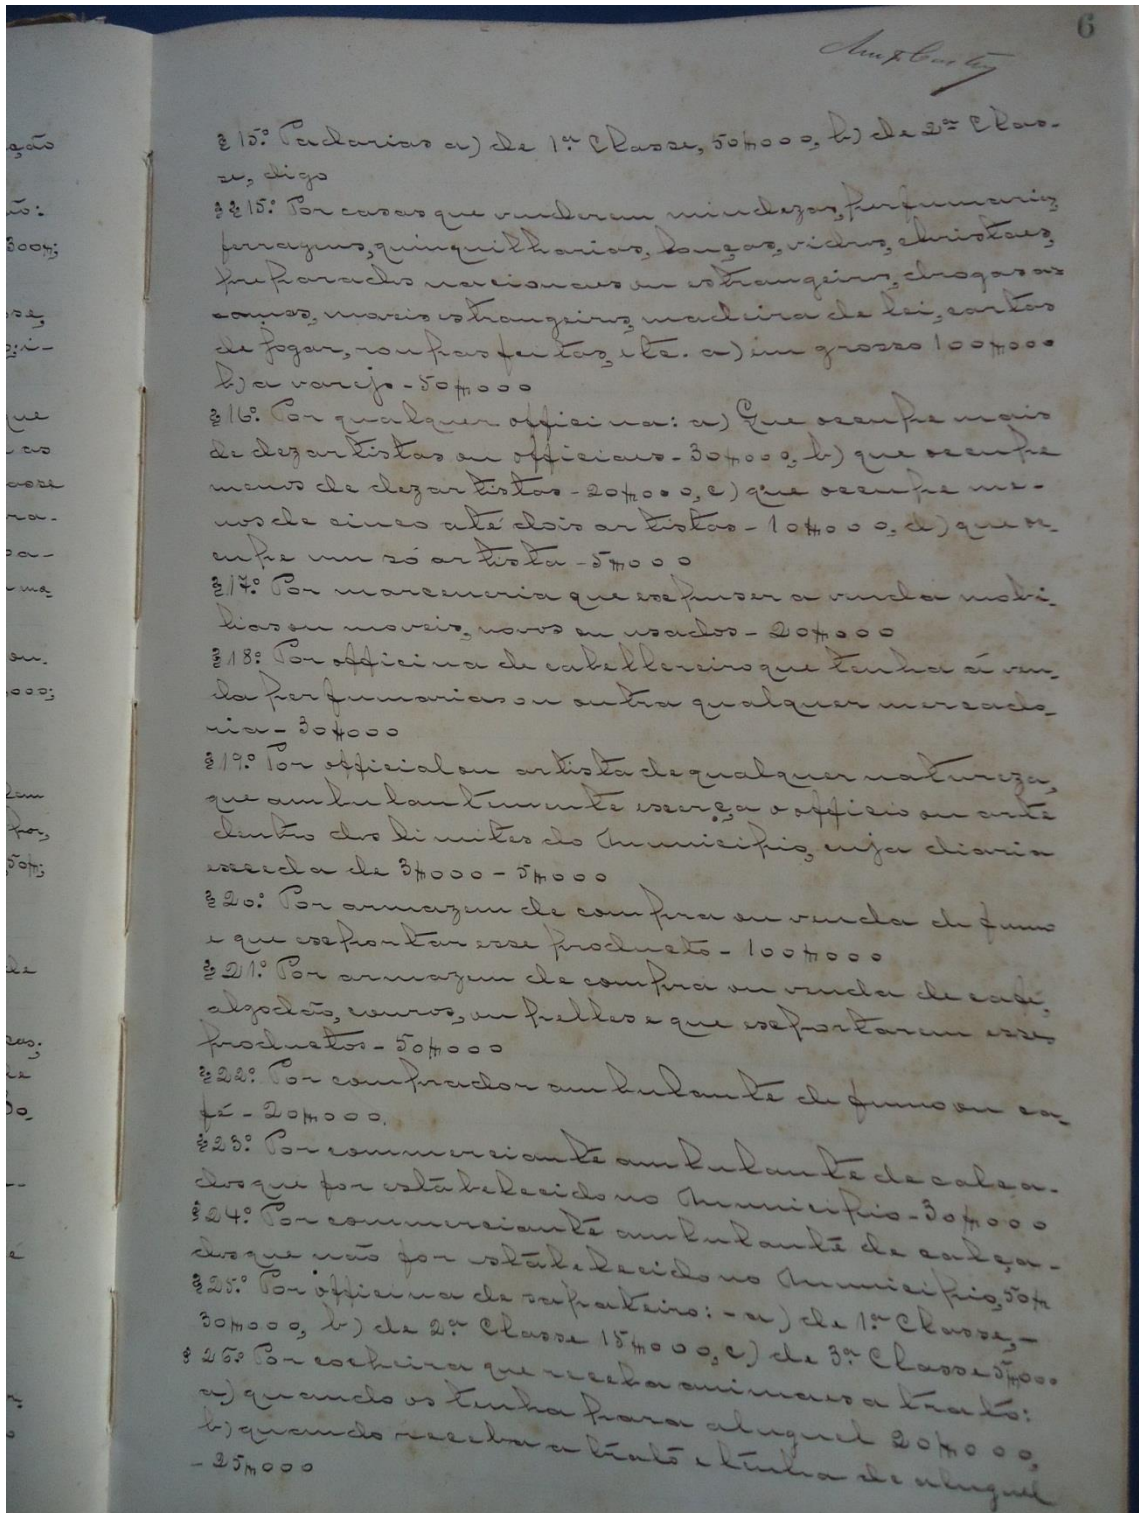 6
§ 15.º Padarias a) de 1.ª Classe, 50$000, b) de 2.ª Clas-
se, digo
§ 15.º Por casas que venderem miudezas, perfumarias,
ferragens, quinquilharias, louças, vidros, christaes,
preparados nacionaes ou estrangeiros, drogas as
comas, moveis estrangeiros, madeira de lei, cartas
de jogar, roupas feitas, etc. a) em grosso 100$000
b) a varejo - 50$000
§ 16.º Por qualquer officina: a) Que occupe mais
de dez artistas ou officiaes - 30$000, b) que occupe
menos de dez artistas - 20$000, c) que occupe me-
nos de cinco até dois artistas - 10$000, d) que oc-
cupe um só artista - 5$000
§ 17.º Por marceneria que expuser a venda mobi-
lias ou moveis, novos ou usados - 20$000
§ 18.º Por officina de cabellereiro que tenha á ven-
da perfumarias ou outra qualquer mercado-
ria - 30$000
§ 19.º Por official ou artista de qualquer natureza,
que ambulantemente exerça o officio ou arte
dentro dos limites do Municipio, cuja diaria
exceda de 3$000 - 5$000
§ 20.º Por armazem de compra ou venda de fumo
e que exportar esse producto - 100$000
§ 21.º Por armazem de compra ou venda de café,
algodão, couros, ou pelles e que exportarem esses
productos - 50$000
§ 22.º Por comprador ambulante de fumo ou ca-
fé - 20$000.
§ 23.º Por commerciante ambulante de calça-
dos que for estabelecido no Municipio - 30$000
§ 24.º Por commerciante ambulante de calça-
dos que não for estabelecido no Municipio, 50$
§ 25.º Por officina de sapateiro: - a) de 1.ª Classe, -
30$000, b) de 2.ª Classe 15$000, c) de 3.ª Classe 5$000
§ 26.º Por cocheira que receba animaes a trato:
a) quando os tenha para aluguel 20$000,
b) quando receba a trato e tenha de aluguel
- 25$000